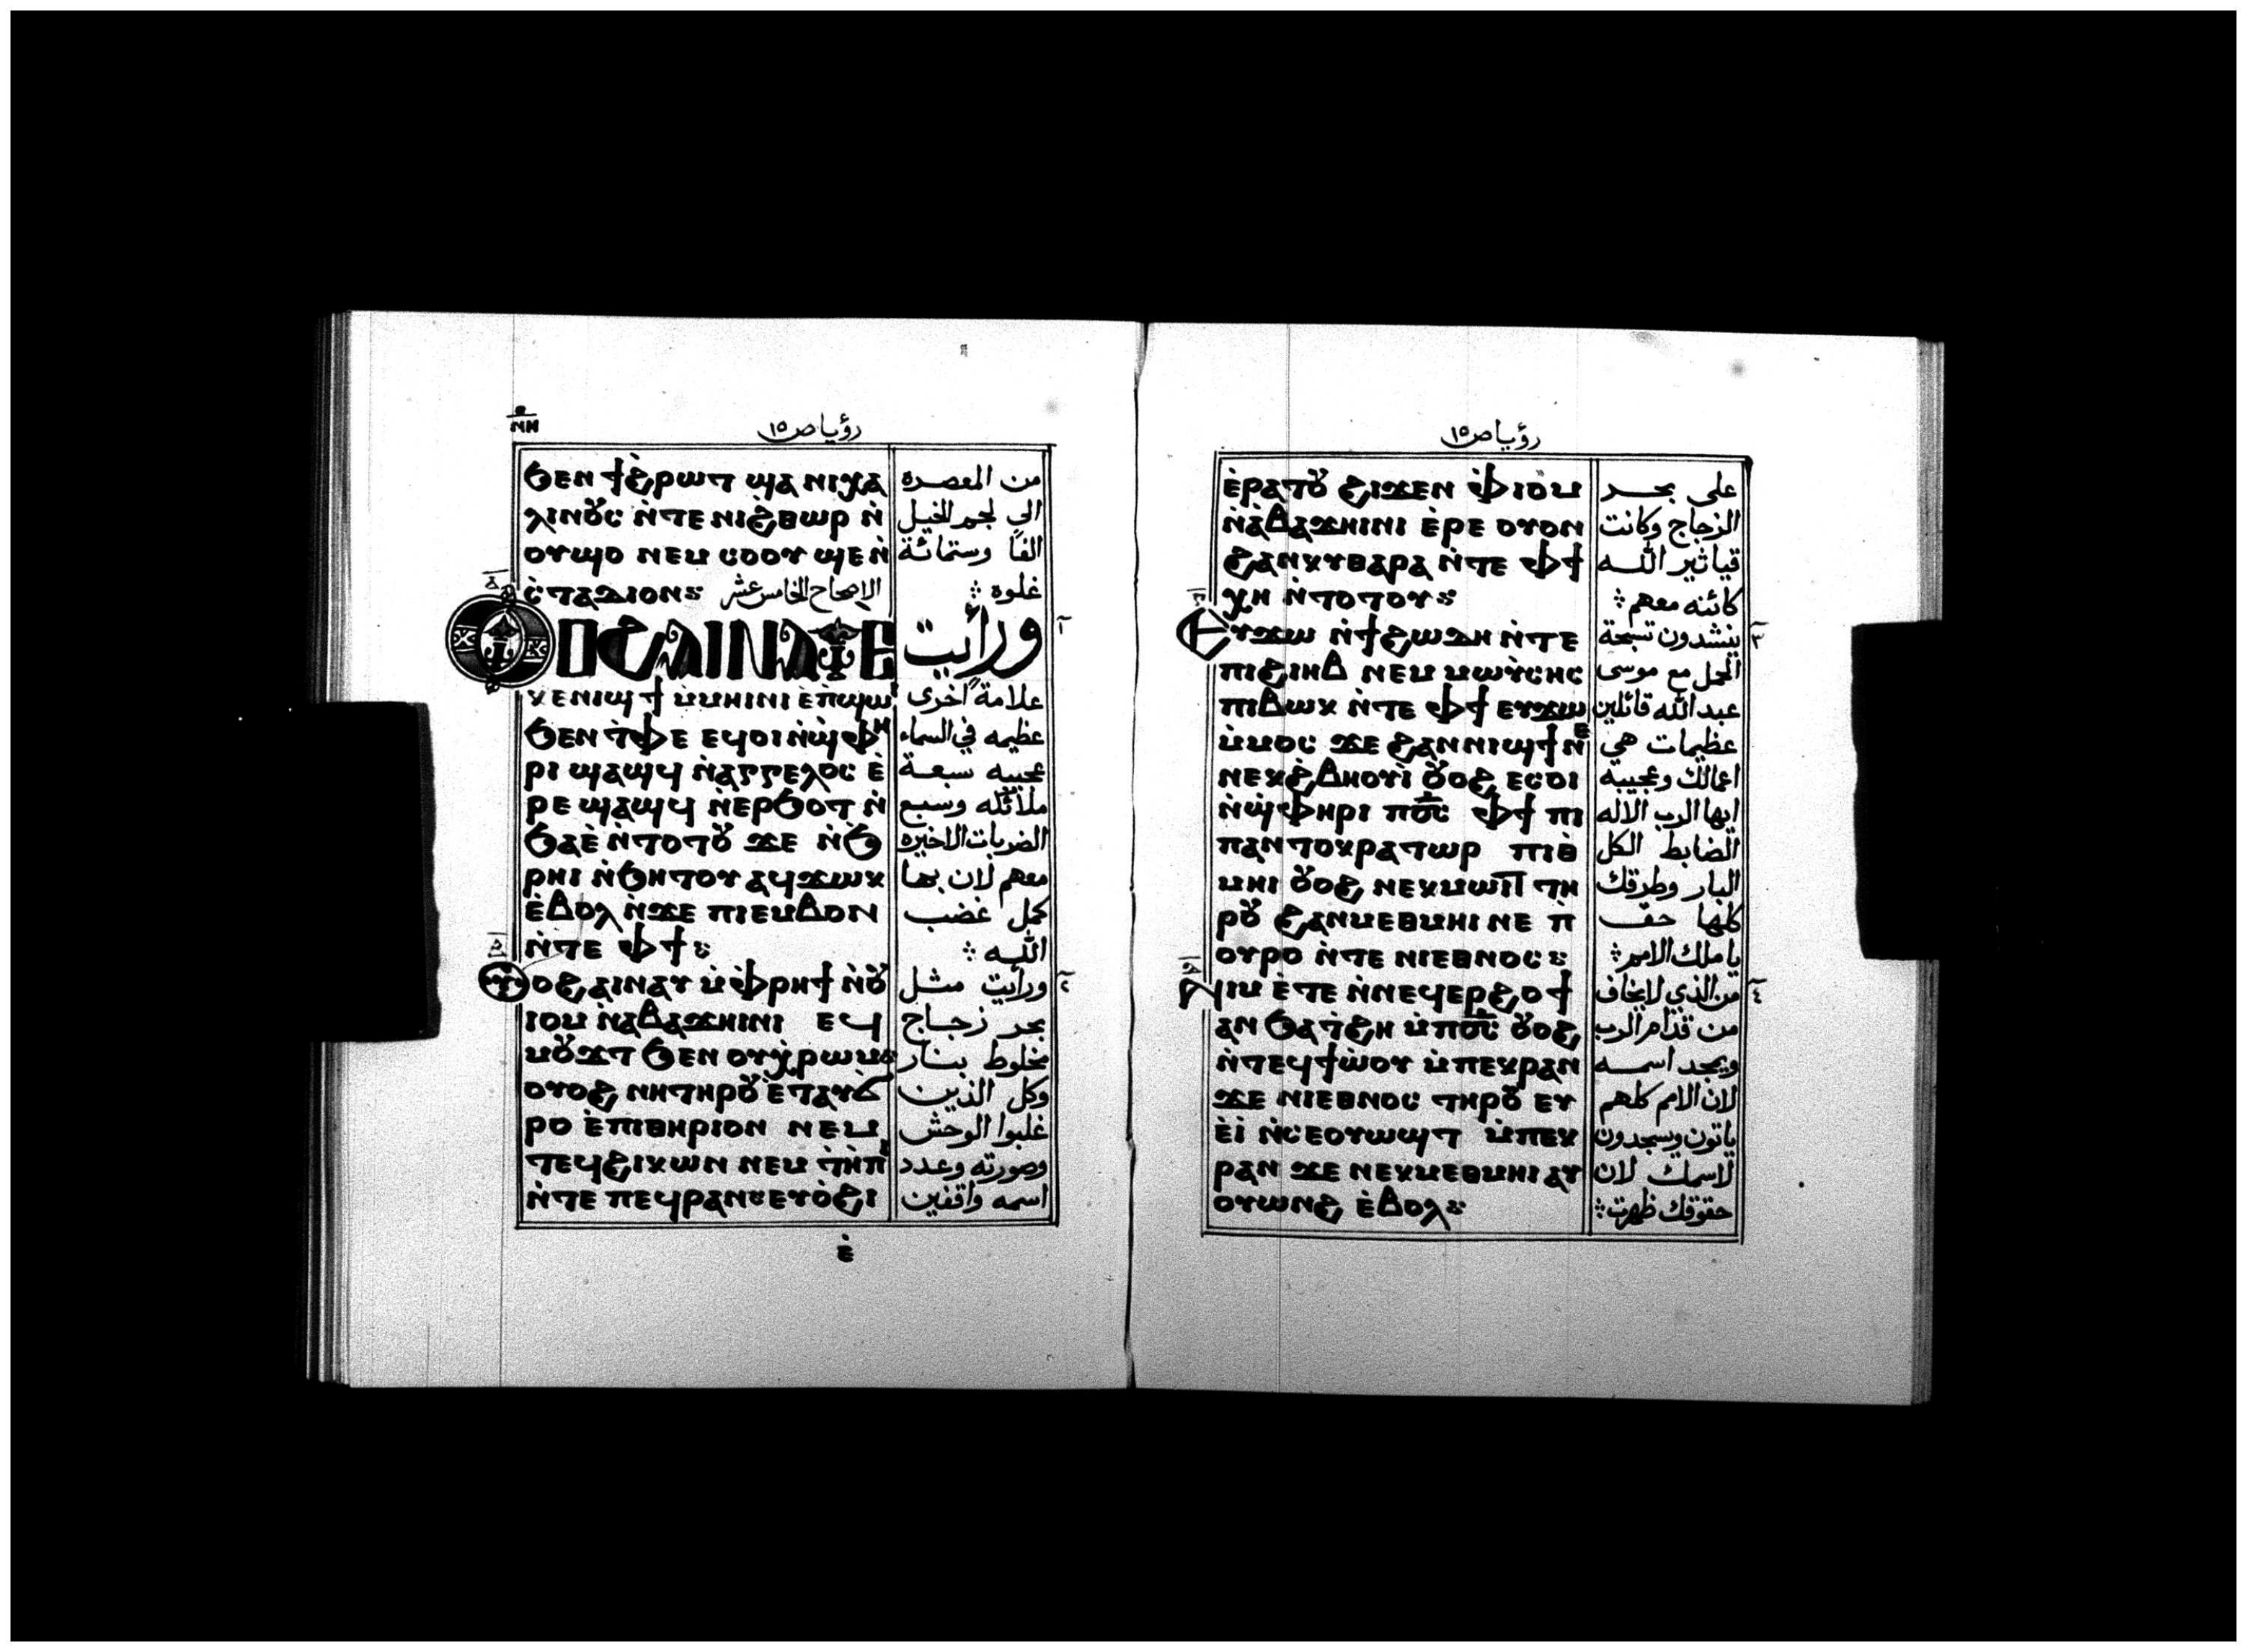 رؤيا ص ١٥
ϧⲉⲛ ϯϩ̀ⲣⲱⲧ ϣⲁ ⲛⲓⲭⲁ
ⲗⲓⲛⲟⲩⲥ ⲛ̀ⲧⲉ ⲛⲓϩ̀ⲑⲱⲣ ⲛ̀
ⲟⲩϣⲟ ⲛⲉⲙ ⲥⲟⲟⲩ ϣⲉ ⲛ̀
ⲥ̀ⲧⲁⲇⲓⲟⲛ
الاصحاح الخامس عشر
ⲟⲩⲟϩ ⲁⲓⲛⲁⲩ ⲉ
ⲕⲉⲛⲓϣϯ ⲙ̀ⲙⲏⲓⲛⲓ ⲉ̀ⲡ̀ϣⲱⲓ
ϧⲉⲛ ⲧ̀ⲫⲉ ⲉϥⲟⲓ ⲛ̀ϣ̀ⲫⲏ
ⲣⲓ ϣⲁϣϥ ⲛ̀ⲁⲅⲅⲉⲗⲟⲥ ⲉ̀
ⲣⲉ ϣⲁϣϥ ⲛ̀ⲉⲣϧⲟⲧ ⲛ̀
ϧⲁⲉ̀ ⲛ̀ⲧⲟⲧⲟⲩ ϫⲉ ⲛ̀ϧ̀
ⲣⲏⲓ ⲛ̀ϧⲏⲧⲟⲩ ⲁϥϫⲱⲕ
ⲉ̀ⲃⲟⲗ ⲛ̀ϫⲉ ⲡⲓⲉⲙⲃⲟⲛ
ⲛ̀ⲧⲉ ⲫϯ
ⲟⲩⲟϩ ⲁⲓⲛⲁⲩ ⲙ̀ⲫ̀ⲣⲏϯ ⲛ̀ⲟⲩ
ⲓⲟⲙ ⲛ̀ⲁⲃⲁϫⲏⲓⲛⲓ ⲉϥ
ⲙⲟⲩϫⲧ ϧⲉⲛ ⲟⲩⲭ̀ⲣⲱⲙ
ⲟⲩⲟϩ ⲛⲏ ⲧⲏⲣⲟⲩ ⲉ̀ⲧⲁⲩϭ
ⲣⲟ ⲉ̀ⲡⲓⲑⲏⲣⲓⲟⲛ ⲛⲉⲙ
ⲧⲉϥϩⲓⲕⲱⲛ ⲛⲉⲙ ⲧ̀ⲏⲡⲓ
ⲛ̀ⲧⲉ ⲡⲉϥⲣⲁⲛ ⲉⲩⲟ̀ϩⲓ
ⲉ̀
من المعصره
الي لجم الخيل
الفًا وستمائة
غلوه
ورأيت
علامة اخرى
عظيمه في السماء
عجيبه سبعة
ملائكه وسبع
الضربات الاخيره
معهم لان بها
كمل غضب
الله
ورأيت مثل
بحر زجاج
مخلوط بنار
وكل الذين
غلبوا الوحش
وصورته وعدد
اسمه واقفين
رؤيا ص ١٥
ⲉ̀ⲣⲁⲧⲟⲩ ϩⲓϫⲉⲛ ⲫ̀ⲓⲟⲙ
ⲛ̀ⲁ̀ⲃⲁϫⲏⲓⲛⲓ ⲉ̀ⲣⲉ ⲟⲩⲟⲛ
ϩⲁⲛⲕⲩⲑⲁⲣⲁ ⲛ̀ⲧⲉ ⲫϯ
ⲭⲏ ⲛ̀ⲧⲟⲧⲟⲩ
ⲉⲩϫⲱ ⲛ̀ϯϩⲱⲇⲏ ⲛ̀ⲧⲉ
ⲡⲓϩⲓⲏⲃ ⲛⲉⲙ ⲙⲱⲩ̀ⲥⲏⲥ
ⲡⲓⲃⲱⲕ ⲛ̀ⲧⲉ ⲫϯ ⲉⲩϫⲱ
ⲙ̀ⲙⲟⲥ ϫⲉ ϩⲁⲛⲛⲓϣϯ ⲛⲉ
ⲛⲉⲕϩ̀ⲃⲏⲟⲩⲓ̀ ⲟⲩⲟϩ ⲉⲥⲟⲓ
ⲛ̀ϣ̀ⲫⲏⲣⲓ ⲡⲟ̅ⲥ̅ ⲫϯ ⲡⲓ
ⲡⲁⲛⲧⲟⲕⲣⲁⲧⲱⲣ ⲡⲓⲑ̀
ⲙⲏⲓ ⲟⲩⲟϩ ⲛⲉⲕⲙⲱⲓⲧ ⲧⲏ
ⲣⲟⲩ ϩⲁⲛⲙⲉⲑⲙⲏⲓ ⲛⲉ ⲡ̀
ⲟⲩⲣⲟ ⲛ̀ⲧⲉ ⲛⲓⲉⲑⲛⲟⲥ
ⲛⲓⲙ ⲉ̀ⲧⲉ ⲛ̀ⲛⲉϥⲉⲣϩⲟϯ
ⲁⲛ ϧⲁⲧ̀ϩⲏ ⲙ̀ⲡⲟ̅ⲥ̅ ⲟⲩⲟϩ
ⲛ̀ⲧⲉϥϯⲱ̀ⲟⲩ ⲙ̀ⲡⲉⲕⲣⲁⲛ
ϫⲉ ⲛⲓⲉⲑⲛⲟⲥ ⲧⲏⲣⲟⲩ ⲉⲩ
ⲉ̀ⲓ̀ ⲛ̀ⲥⲉⲟⲩⲱϣⲧ ⲙ̀ⲡⲉⲕ
ⲣⲁⲛ ϫⲉ ⲛⲉⲕⲙⲉⲑⲙⲏⲓ ⲁⲩ
ⲟⲩⲱⲛϩ ⲉ̀ⲃⲟⲗ
على بحر
الزجاج وكانت
قياثير الله
كائنه معهم
ينشدون تسبحة
الحمل مع موسى
عبد الله قائلين
عظيمات هي
اعمالك وعجيبه
ايها الرب الاله
الضابط الكل
البار وطرقك
كلها حق
يا ملك الامم
من الذي لا يخاف
من قدام الرب
ويمجد اسمه
لان الامم كلهم
ياتون ويسجدون
لاسمك لان
حقوقك ظهرت